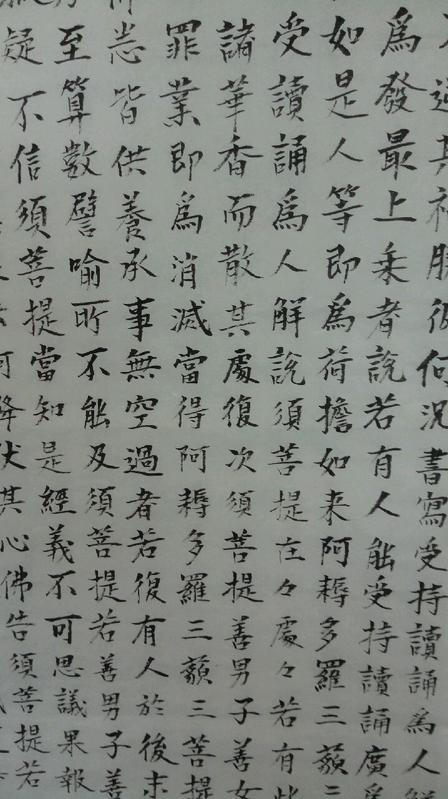 過其福勝彼何況書寫受持讀誦爲人解
爲發最上乘者說若有人能受持讀誦廣爲
如是人等即爲荷擔如来阿耨多羅三藐三
受讀誦爲人解說須菩提在々處々若有此
諸華香而散其處復次須菩提善男子善女
罪業即爲消滅當得阿耨多羅三藐三菩提
悉皆供養承事無空過者若復有人於後末
至算數譬喻所不能及須菩提若善男子善
疑不信須菩提當知是經義不可思議果報
何降伏其心佛告須菩提若